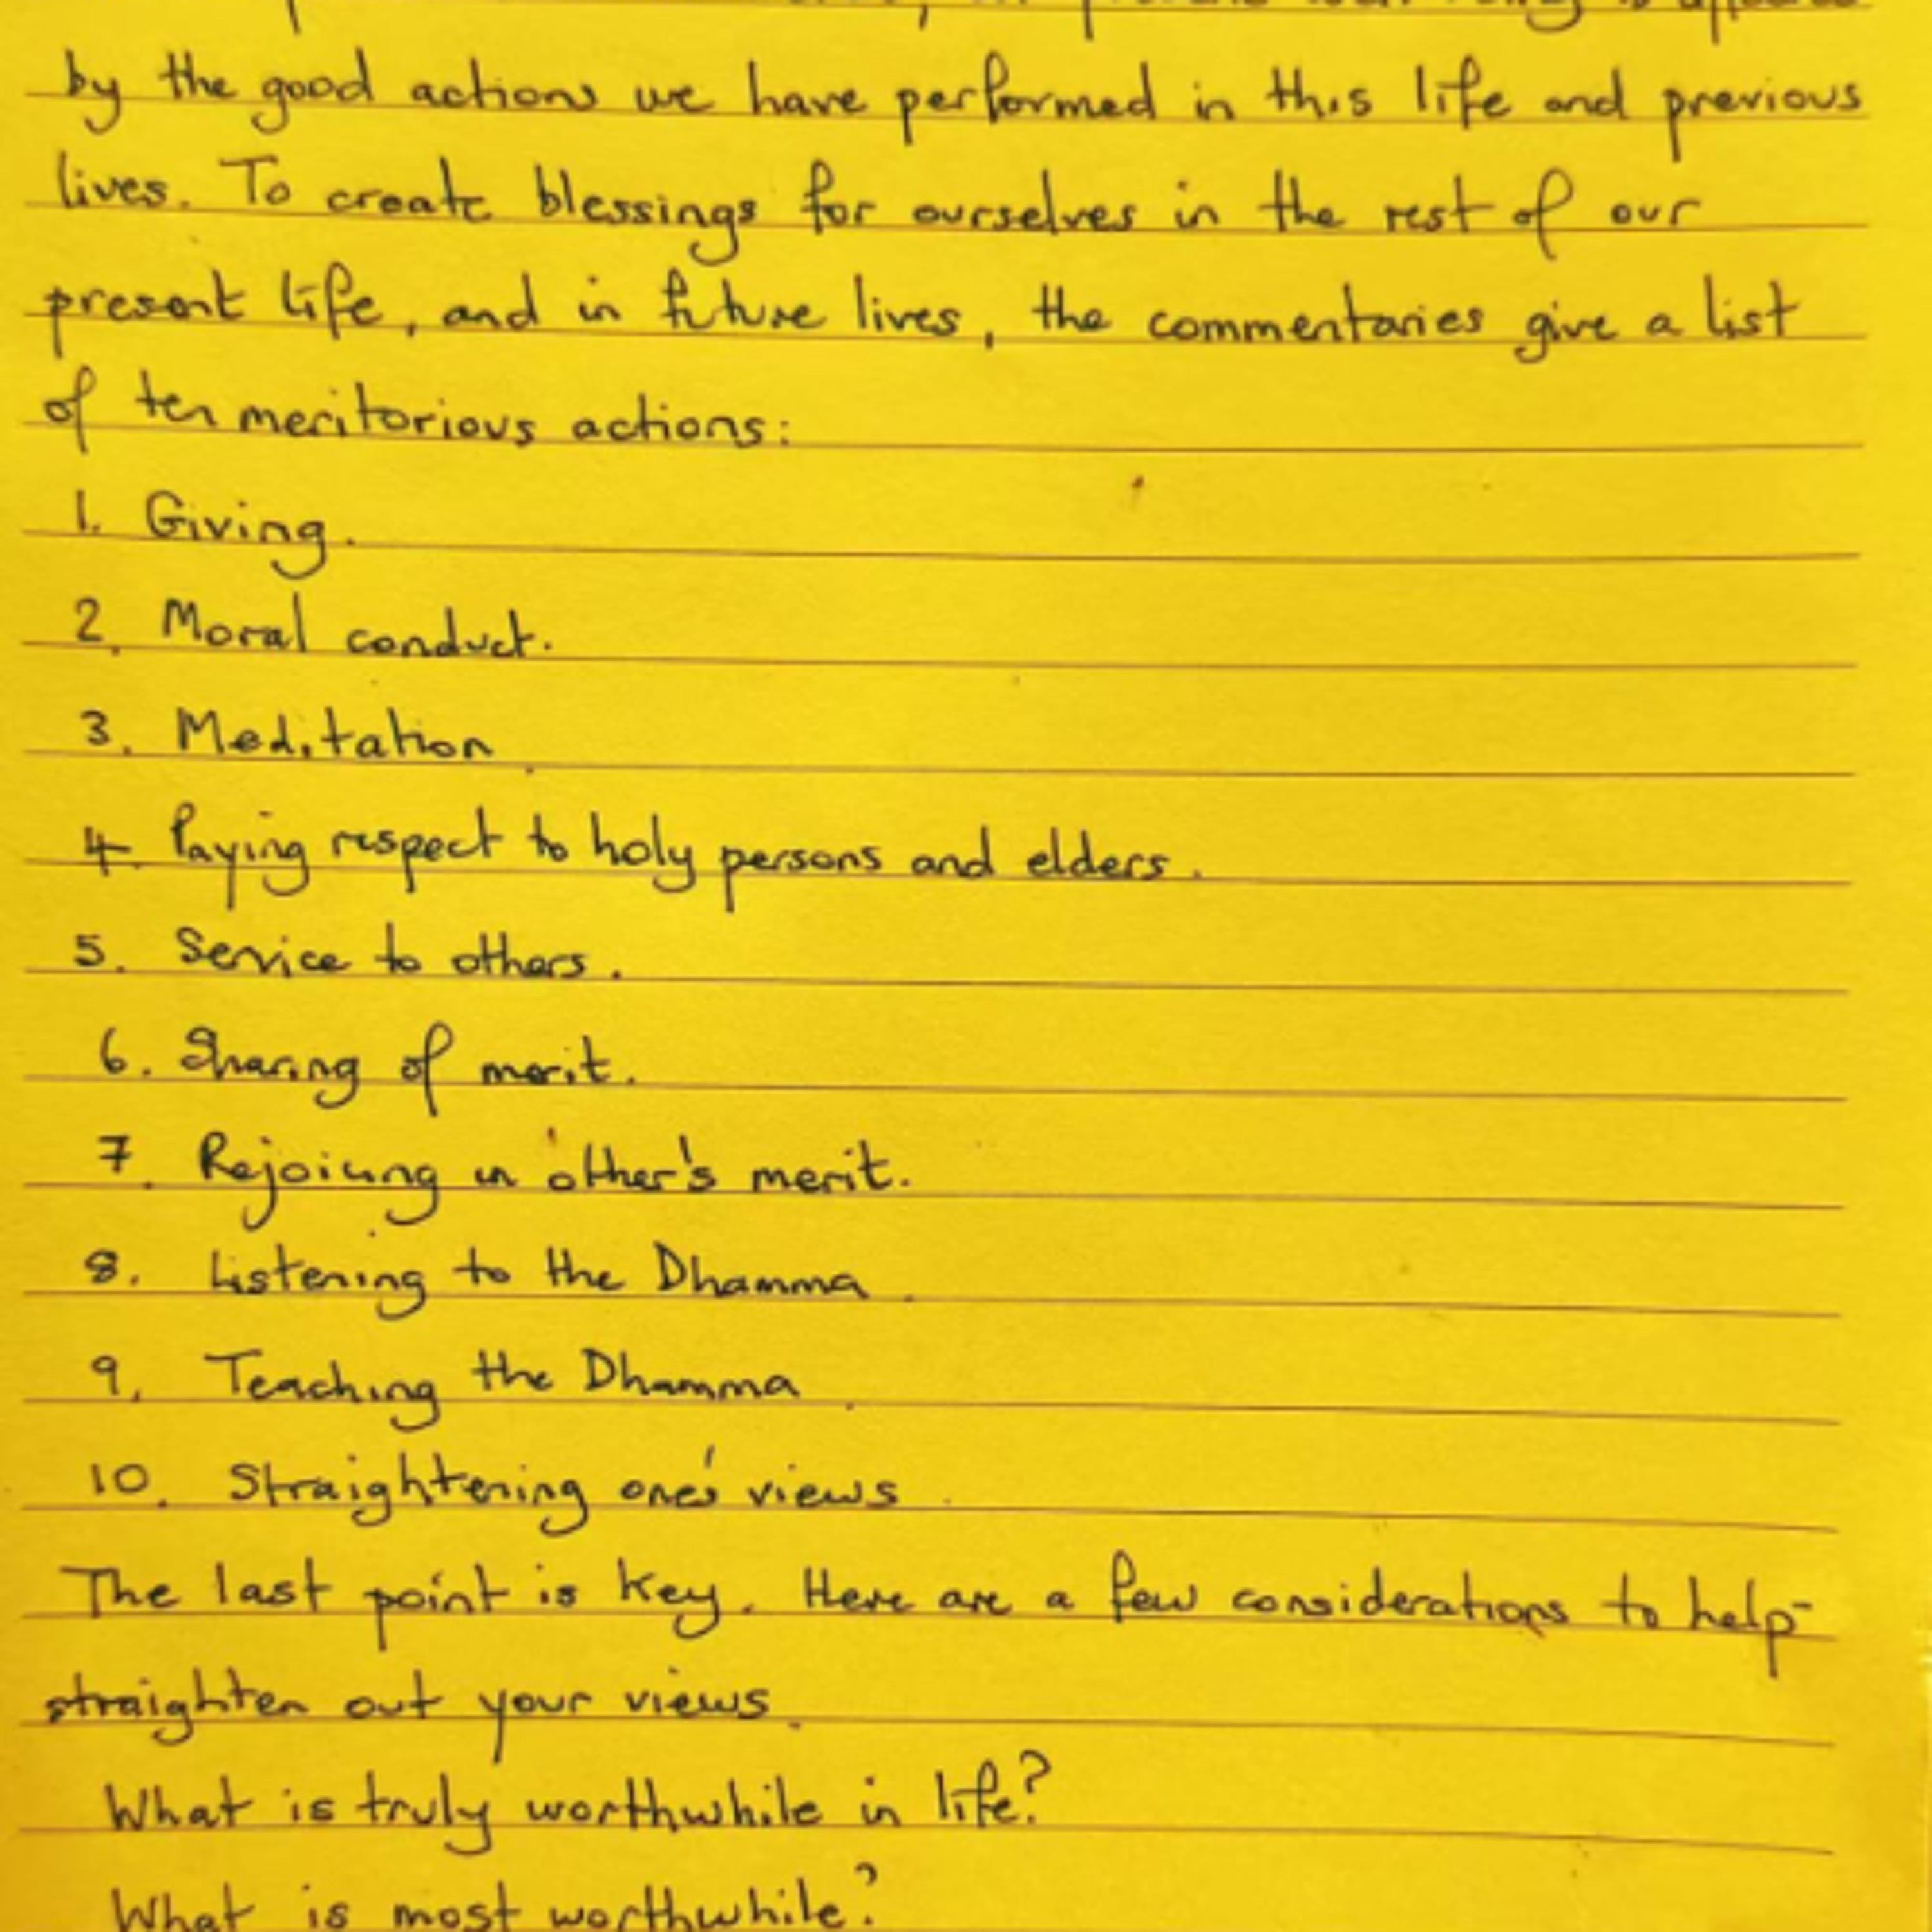 by the good actions we have performed in this life and previous
lives. To create blessings for ourselves in the rest of our
present life, and in future lives, the commentaries give a list
of ten meritorious actions:
1. Giving.
2. Moral conduct.
3. Meditation.
4. Paying respect to holy persons and elders.
5. Service to others.
6. Sharing of merit.
7. Rejoicing in other's merit.
8. Listening to the Dhamma.
9. Teaching the Dhamma.
10. Straightening one's views.
The last point is key. Here are a few considerations to help
straighten out your views.
What is truly worthwhile in life?
What is most worthwhile?